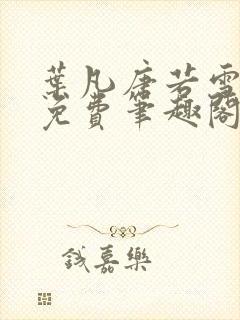 葉凡唐若雪
免費筆趣閣
錢嘉樂